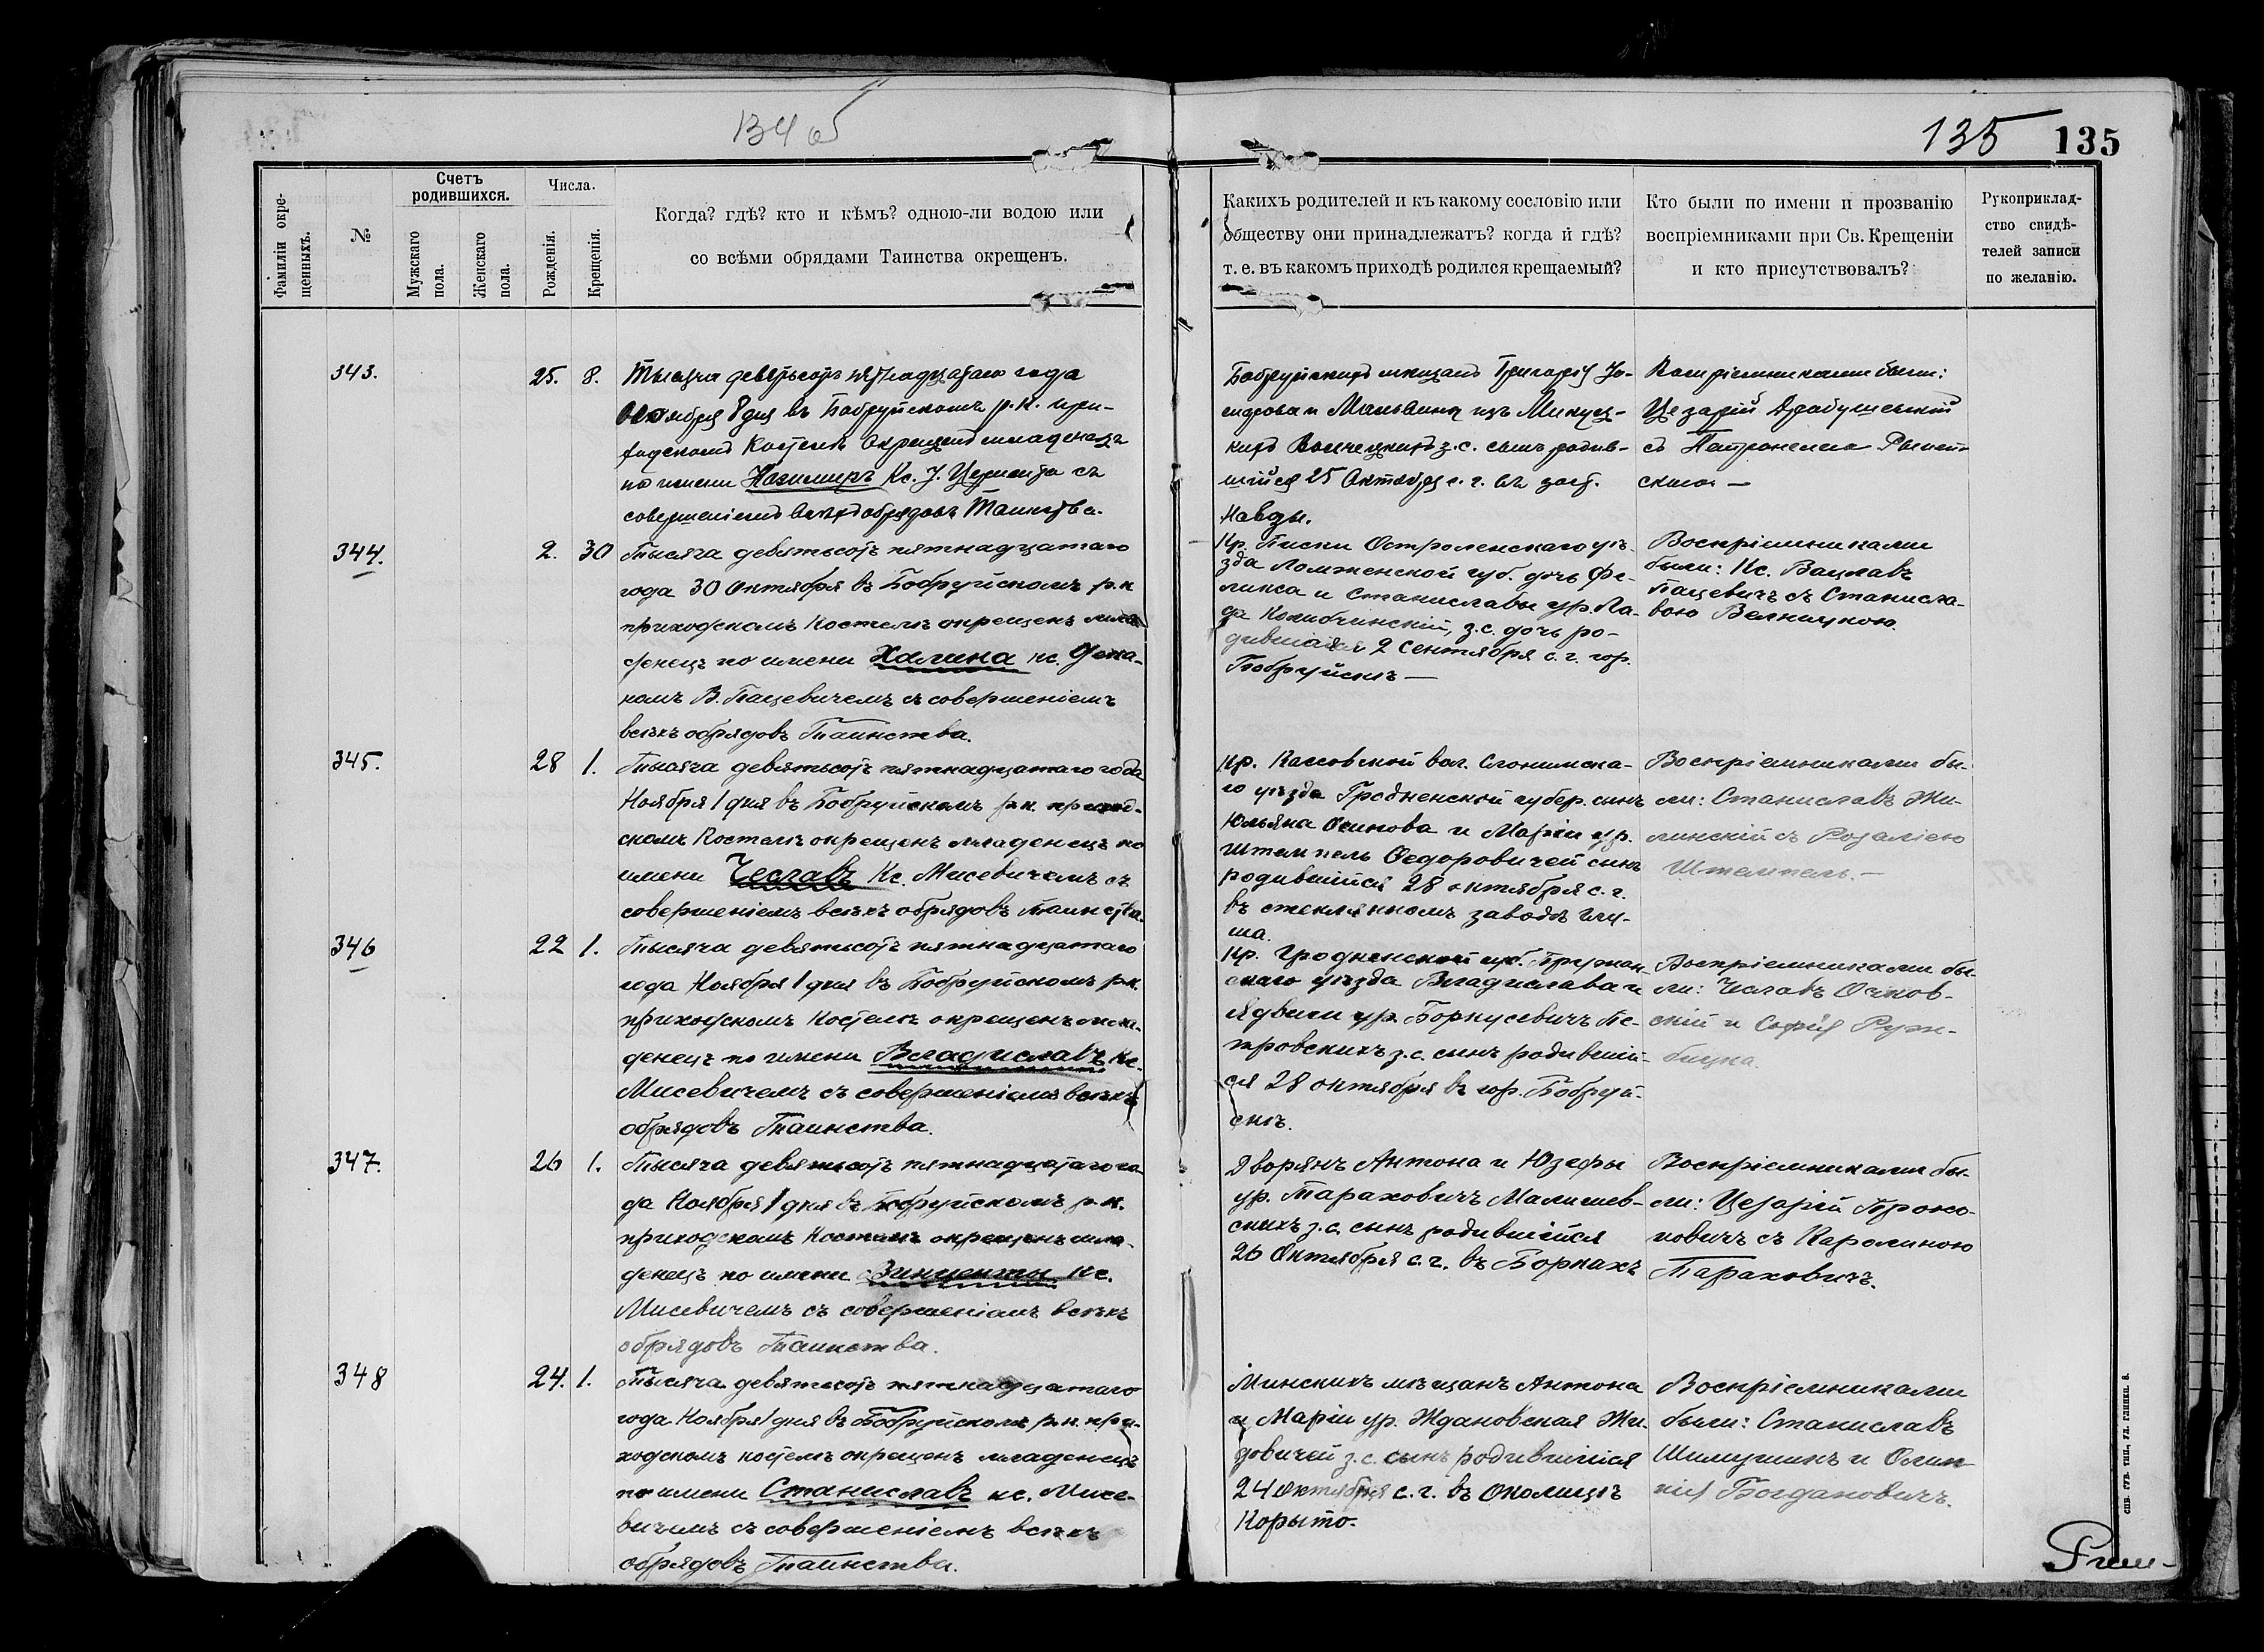 134 об
135 135
Фамиліи окре-
щенныхъ.
№
Счетъ
родившихся.
Мужскаго
пола.
Женскаго
пола.
Числа.
Рожденія.
Крещенія.
Когда? гдѣ? кто и кѣмъ? одною-ли водою или
со всѣми обрядами Таинства окрещенъ.
Какихъ родителей и къ какому сословію или
обществу они принадлежатъ? когда и гдѣ?
т. е. въ какомъ приходѣ родился крещаемый?
Кто были по имени и прозванію
воспріемниками при Св. Крещеніи
и кто присутствовалъ?
Рукоприклад-
ство свидѣ-
телей записи
по желанію.
343. 25. 8.
Тысяча девятьсотъ пятнадцатаго года
8 дня въ Бобруйскомъ р.к. при-
ходскомъ Костелѣ окрещенъ младенецъ
по имени Казимиръ Кс. съ
совершеніемъ всѣхъ обрядовъ Таинства.
Бобруйскихъ мѣщанъ Григорія
и изъ
з.с. сынъ родив-
шійся 25 Октября с. г. въ
Воспріемниками были:
Цезарій
съ
344. 2. 30
Тысяча девятьсотъ пятнадцатаго
года 30 Октября въ Бобруйскомъ р.к
приходскомъ Костелѣ окрещенъ мла
денецъ по имени Халина кс. Дека-
номъ В. Пацевичемъ съ совершеніемъ
всѣхъ обрядовъ Таинства.
Кр. Писки Остроленскаго уѣ-
зда Ломженской губ. дочь Фе-
ликса и Станиславы ур. Ла-
з.с. дочь ро-
дившаяся 2 Сентября с. г. гор.
Бобруйскъ —
Воспріемниками
были: Кс. Вацлавъ
Пацевичъ съ Станисла-
вою
345. 28 1.
Тысяча девятьсотъ пятнадцатаго года
Ноября 1 дня въ Бобруйскомъ р.к. приход-
скомъ Костелѣ окрещенъ младенецъ по
имени Чеславъ Кс. Мисевичемъ съ
совершеніемъ всѣхъ обрядовъ Таинства.
Кр. вол. Слонимска-
го уѣзда Гродненской губер. сынъ
Юльяна Осипова и Маріи ур.
Штемпель Федоровичей сынъ
родившійся 28 октября с. г.
въ стеклянномъ заводѣ Глу-
ша.
Воспріемниками бы-
ли: Станиславъ Жи-
линскій съ Розаліею
Штемпель. —
346 22 1.
Тысяча девятьсотъ пятнадцатаго
года Ноября 1 дня въ Бобруйскомъ р.к.
приходскомъ Костелѣ окрещенъ мла-
денецъ по имени Владиславъ Кс.
Мисевичемъ съ совершеніемъ всѣхъ
обрядовъ Таинства.
Кр. Гродненской губ. Пружан-
скаго уѣзда Владислава и
Ядвиги ур. Боркусевичъ Пе-
тровскихъ з.с. сынъ родившій-
ся 28 октября въ гор. Бобруй-
скѣ.
Воспріемниками бы-
ли: Чеславъ
скій и Софія
347. 26 1.
Тысяча девятьсотъ пятнадцатаго го-
да Ноября 1 дня въ Бобруйскомъ р.к.
приходскомъ Костелѣ окрещенъ мла-
денецъ по имени Винценты Кс.
Мисевичемъ съ совершеніемъ всѣхъ
обрядовъ Таинства.
Дворянъ Антона и Юзефы
ур. Тараховичъ Малишев-
скихъ з.с. сынъ родившійся
26 Октября с. г. въ Боркахъ
Воспріемниками бы-
ли: Цезарій Проко-
повичъ съ Каролиною
Тараховичъ.
348 24. 1.
Тысяча девятьсотъ пятнадцатаго
года Ноября 1 дня въ Бобруйскомъ р.к. при-
ходскомъ костелѣ окрещенъ младенецъ
по имени Станиславъ кс. Мисе-
вичемъ съ совершеніемъ всѣхъ
обрядовъ Таинства.
Минскихъ мѣщанъ Антона
и Маріи ур. Ждановская Жи-
довичей з.с. сынъ родившійся
24 октября с. г. въ Околицѣ
Корыто.
Воспріемниками
были: Станиславъ
и Олим-
пія Богдановичъ.
СПБ. ГУБ. ТИП., УЛ. ГЛИНКИ, 8.